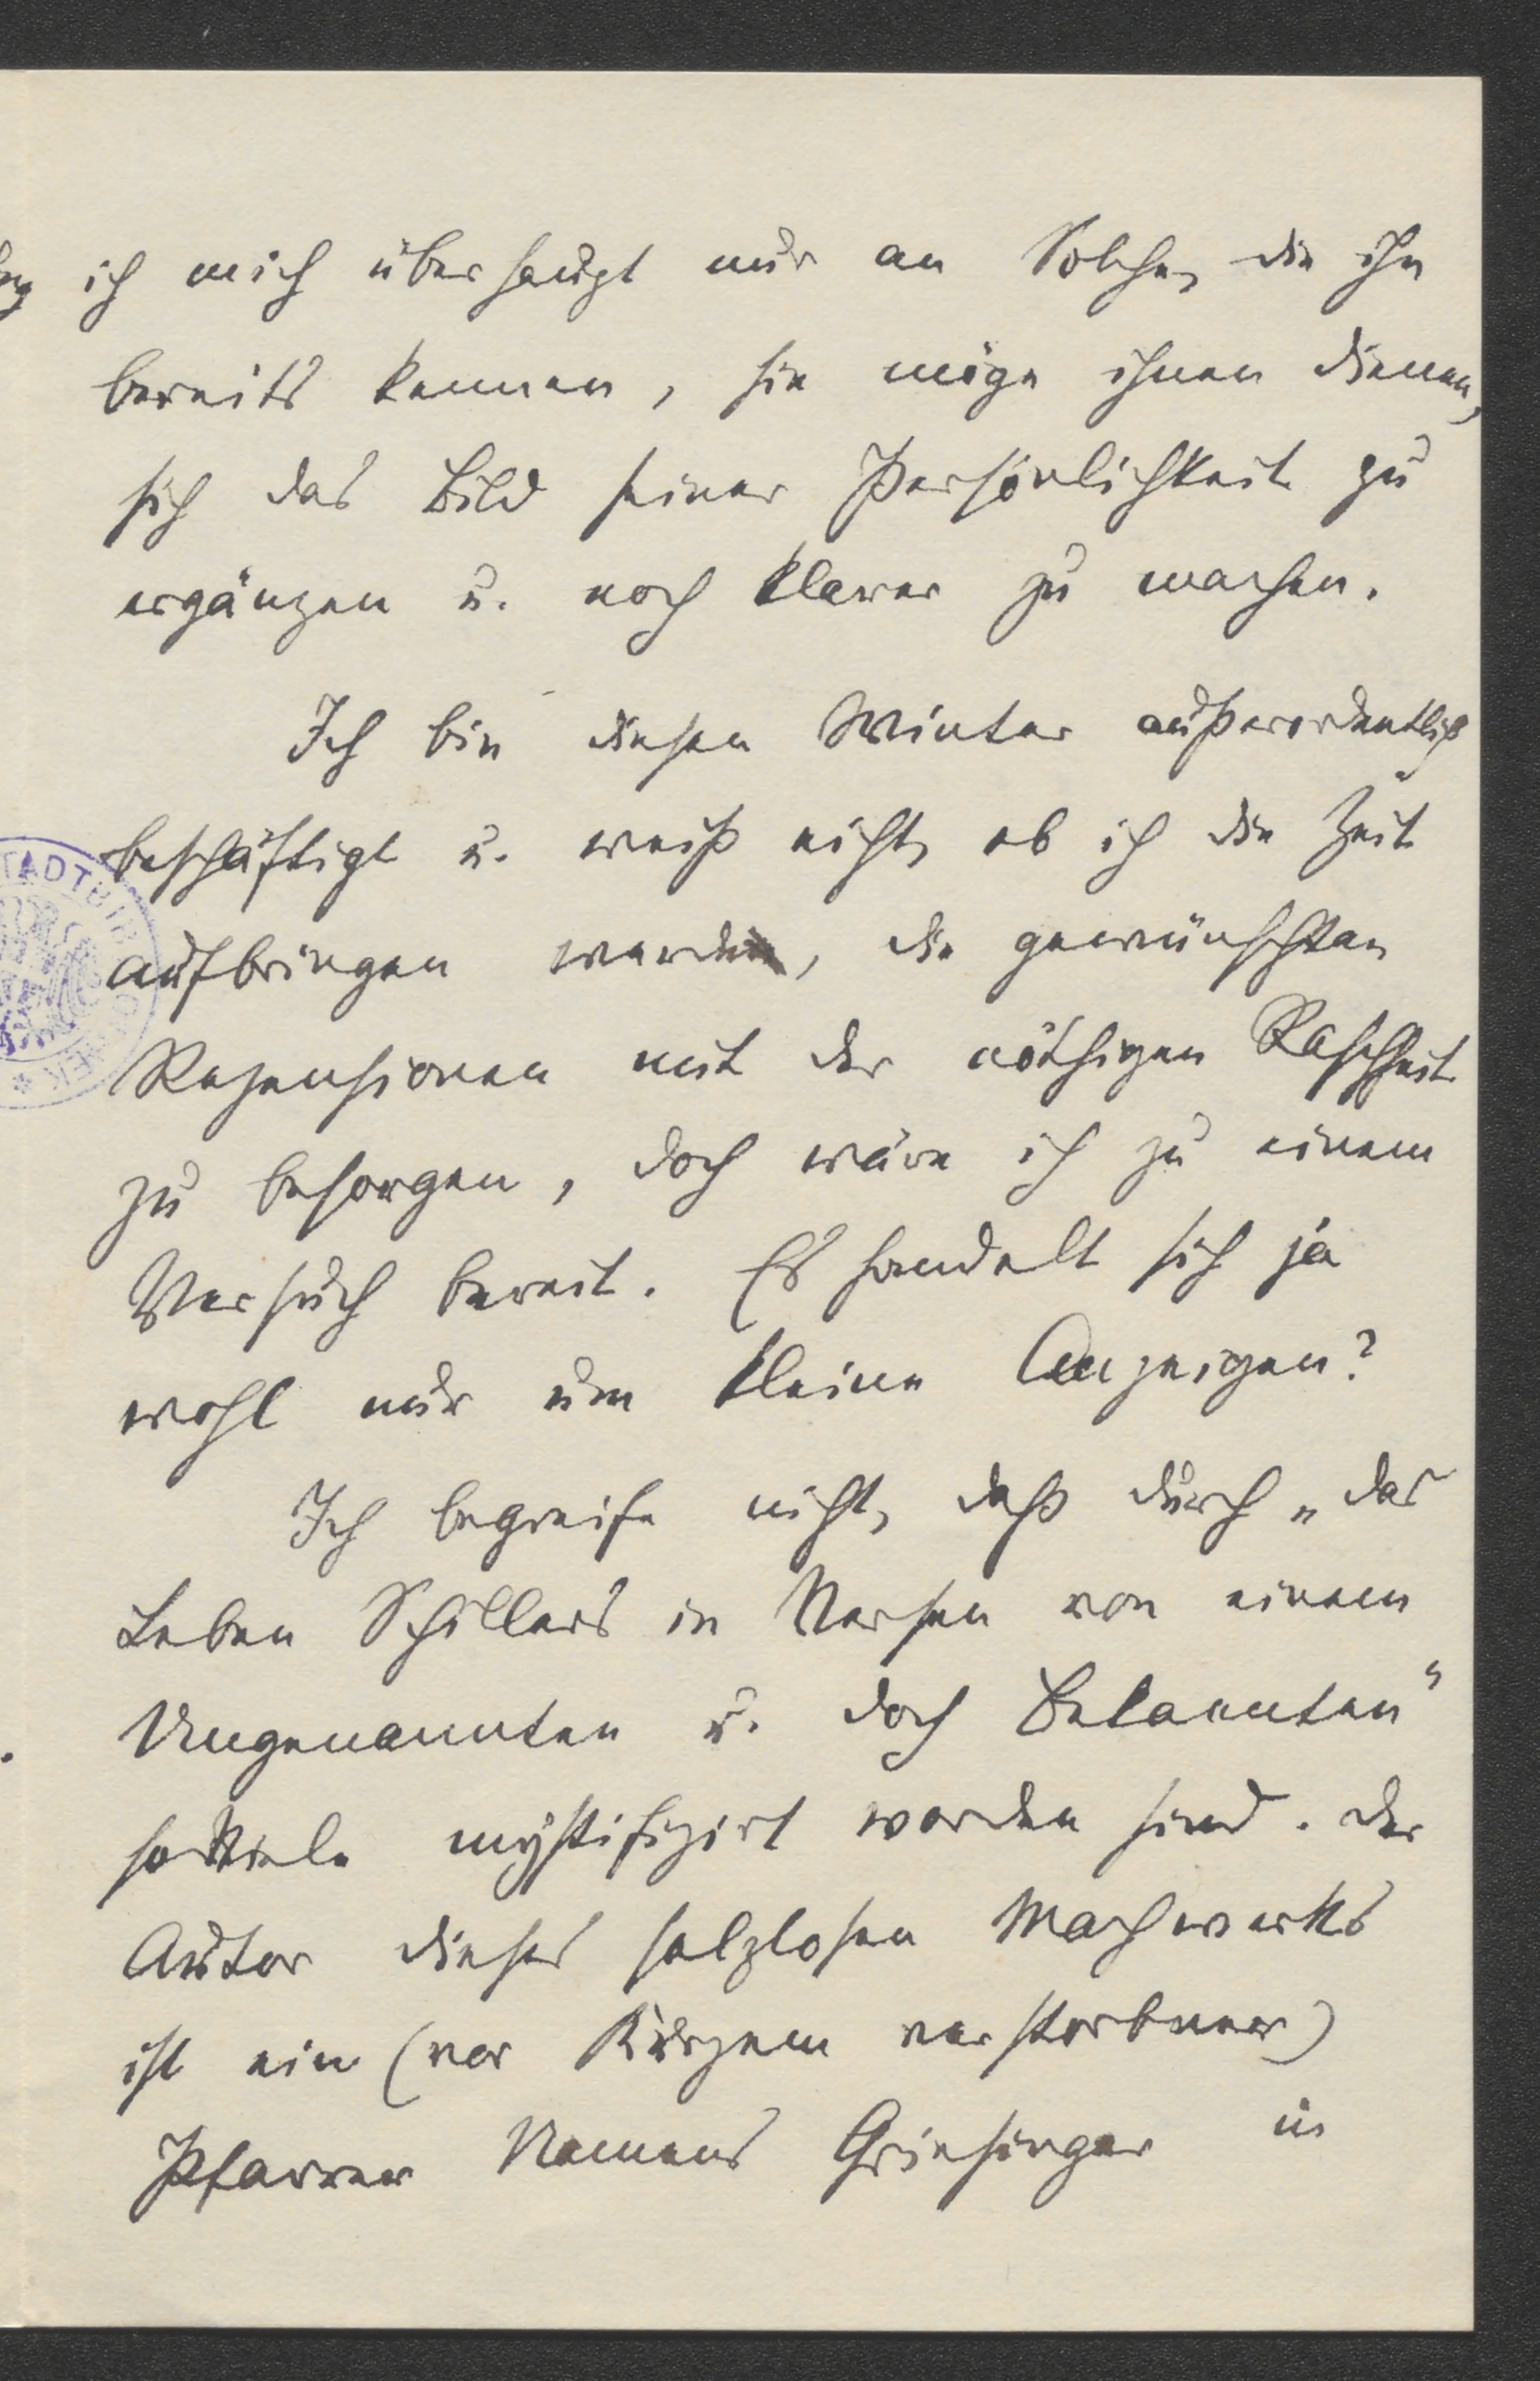 ich mich überhaupt nur an Solche, die ihn
bereits kennen, sie möge ihnen dienen,
sich das Bild seiner Persönlichkeit zu
ergänzen u. noch klarer zu machen.
Ich bin diesen Winter außerordentlich
beschäftigt u. weiß nicht, ob ich die Zeit
aufbringen werde, die gewünschten
Rezensionen mit der nöthigen Raschheit
zu besorgen, doch wäre ich zu einem
Versuch bereit. Es handelt sich ja
wohl nur um kleine Anzeigen?
Ich begreife nicht, daß durch „das
Leben Schillers in Versen von einem
Ungenannten u. doch Bekannten"
so Viele mystifizirt worden sind. Der
Autor dieses salzlosen Machwerks
ist ein (vor Kurzem verstorbener)
Pfarrer Namens Griesinger in
STADTBIBLIOTHEK